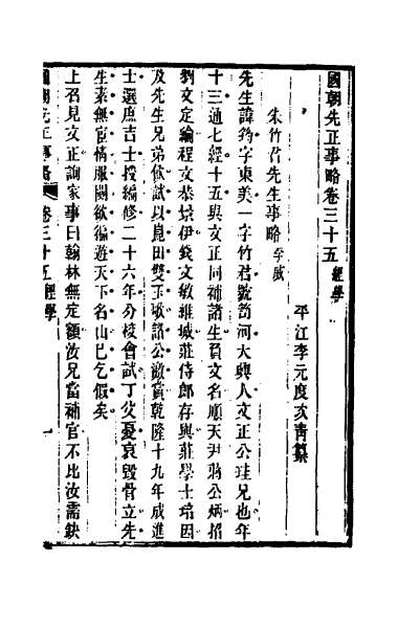 國朝先正事略卷三十五 經學
平江李元度次青纂
朱竹君先生事略 李威
先生諱筠字東美一字竹君號笥河大興人文正公珪兄也年
十三通七經十五與文正同補諸生負文名順天尹蔣公炳招
劉文定綸程文恭景伊錢文敏維城莊侍郎存與莊學士培因
及先生兄弟僦試以崑田雙玉歌諸公激賞乾隆十九年成進
士選庶吉士授編修二十六年分校會試丁父憂哀毀骨立先
生素無宦情服闋欲徧遊天下名山已乞假矣
上召見文正詢家事曰翰林無定額汝兄當補官不比汝需缺
國朝先正事略 卷三十五 經學 一